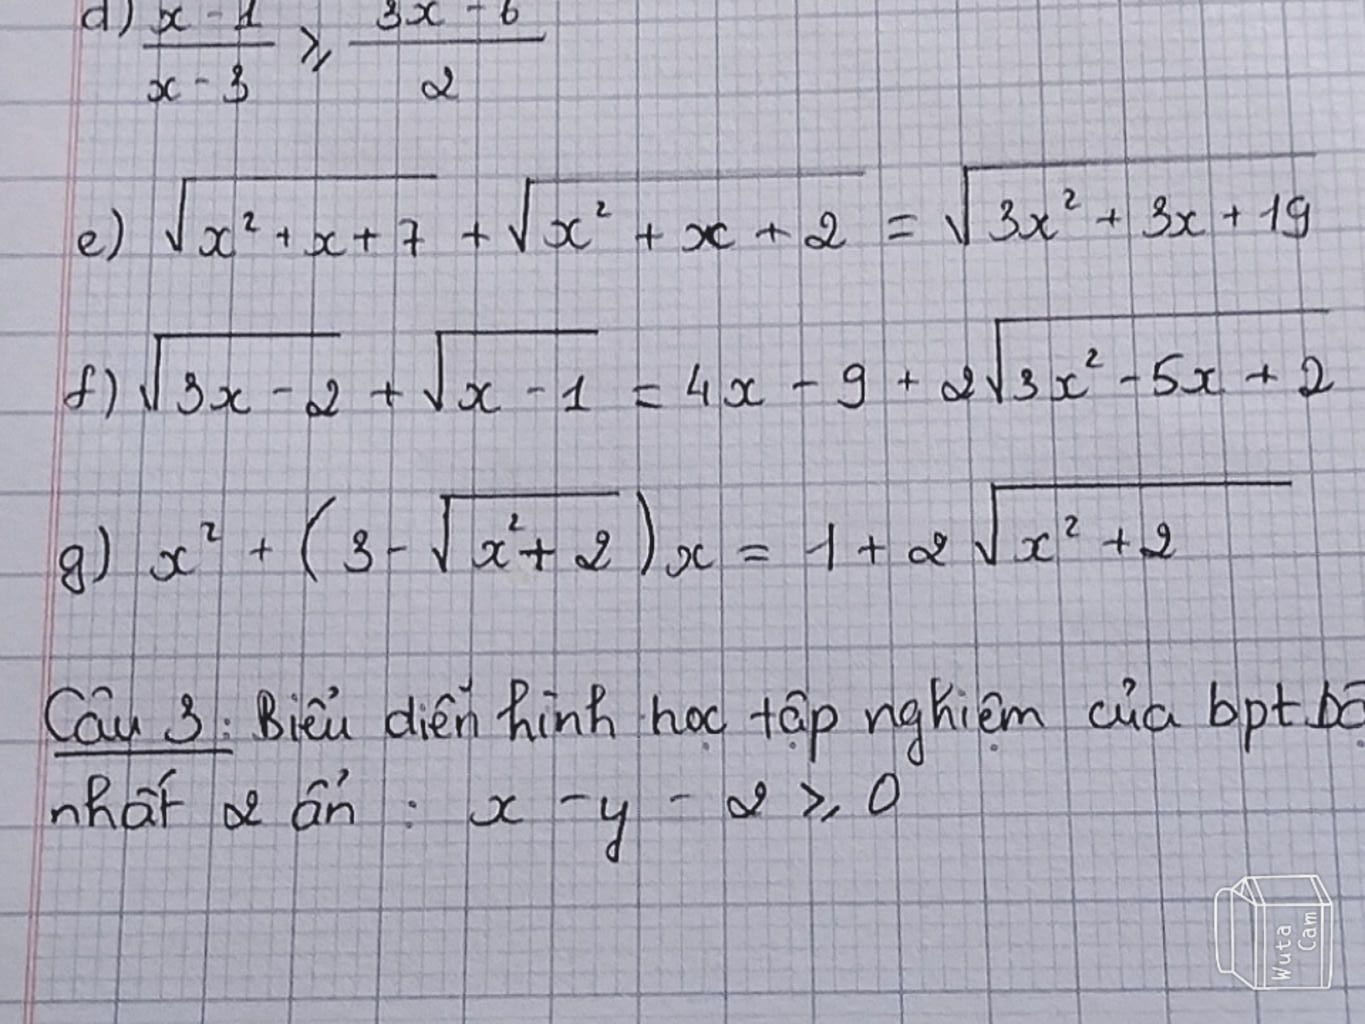 d) x - 1 / x - 3 ≥ 3x - 6 / 2
e) √(x² + x + 7) + √(x² + x + 2) = √(3x² + 3x + 19)
f) √(3x - 2) + √(x - 1) = 4x - 9 + 2√(3x² - 5x + 2)
g) x² + (3 - √(x² + 2))x = 1 + 2√(x² + 2)
Câu 3: Biểu diễn hình học tập nghiệm của bpt bậ
nhất 2 ẩn : x - y - 2 ≥ 0
Wuta
Cam